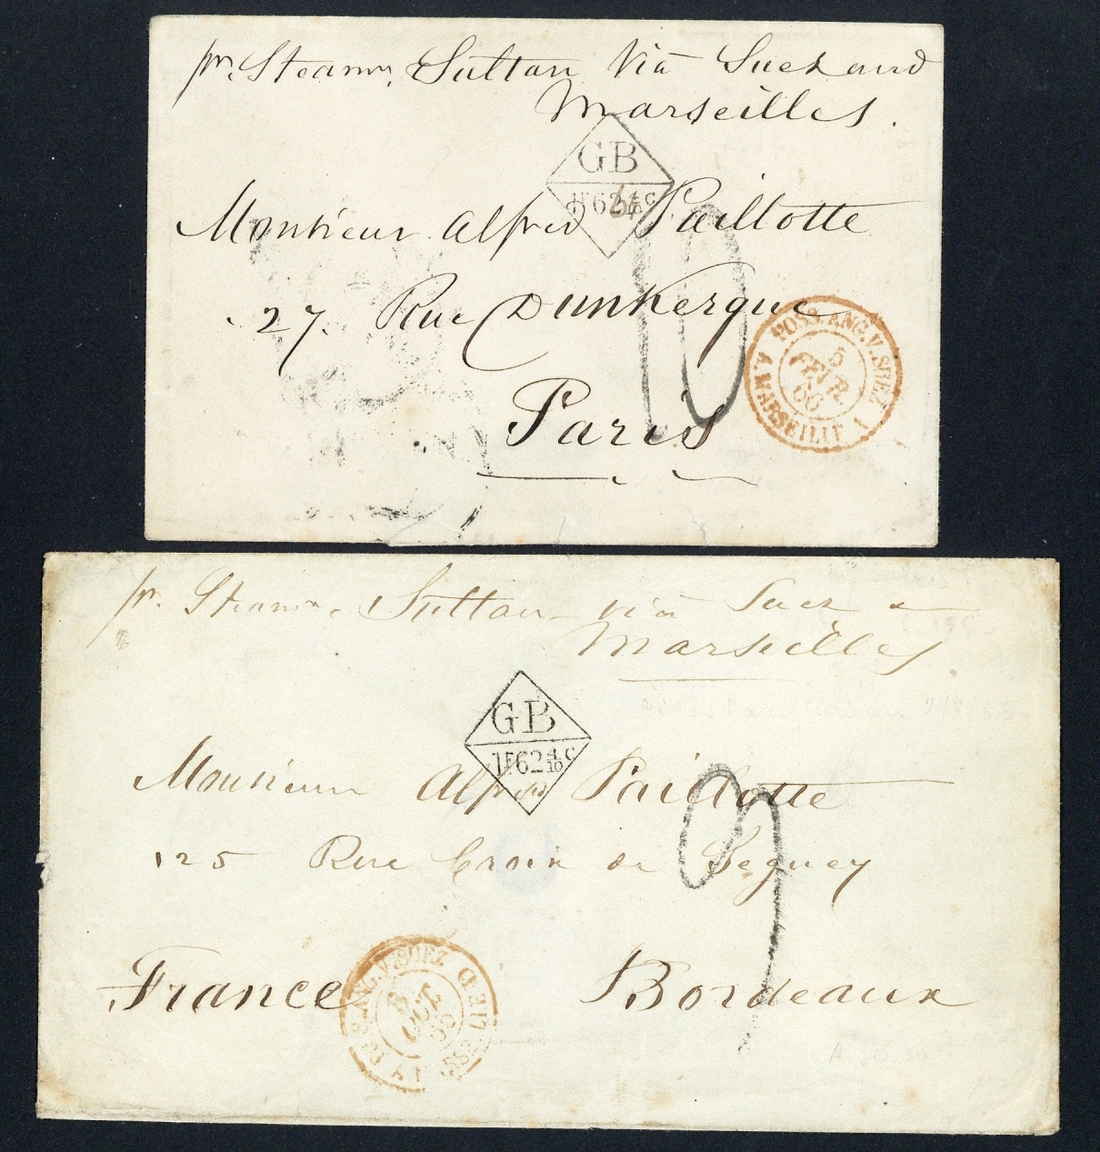 pr. Steamr. Sultan Via Suez and
Marseilles.
GB
1F62 4/10 c
Monsieur Alfred Paillotte
27. Rue Dunkerque
Paris
10
POSS. ANG. V. SUEZ
A. MARSEILLE
5
FEVR
66
pr. Steamr. Sultan via Suez &
Marseilles
GB
1F62 4/10 c
Monsieur Alfred Paillotte
125 Rue Croix de Seguey
France Bordeaux
V. SUEZ
OCT